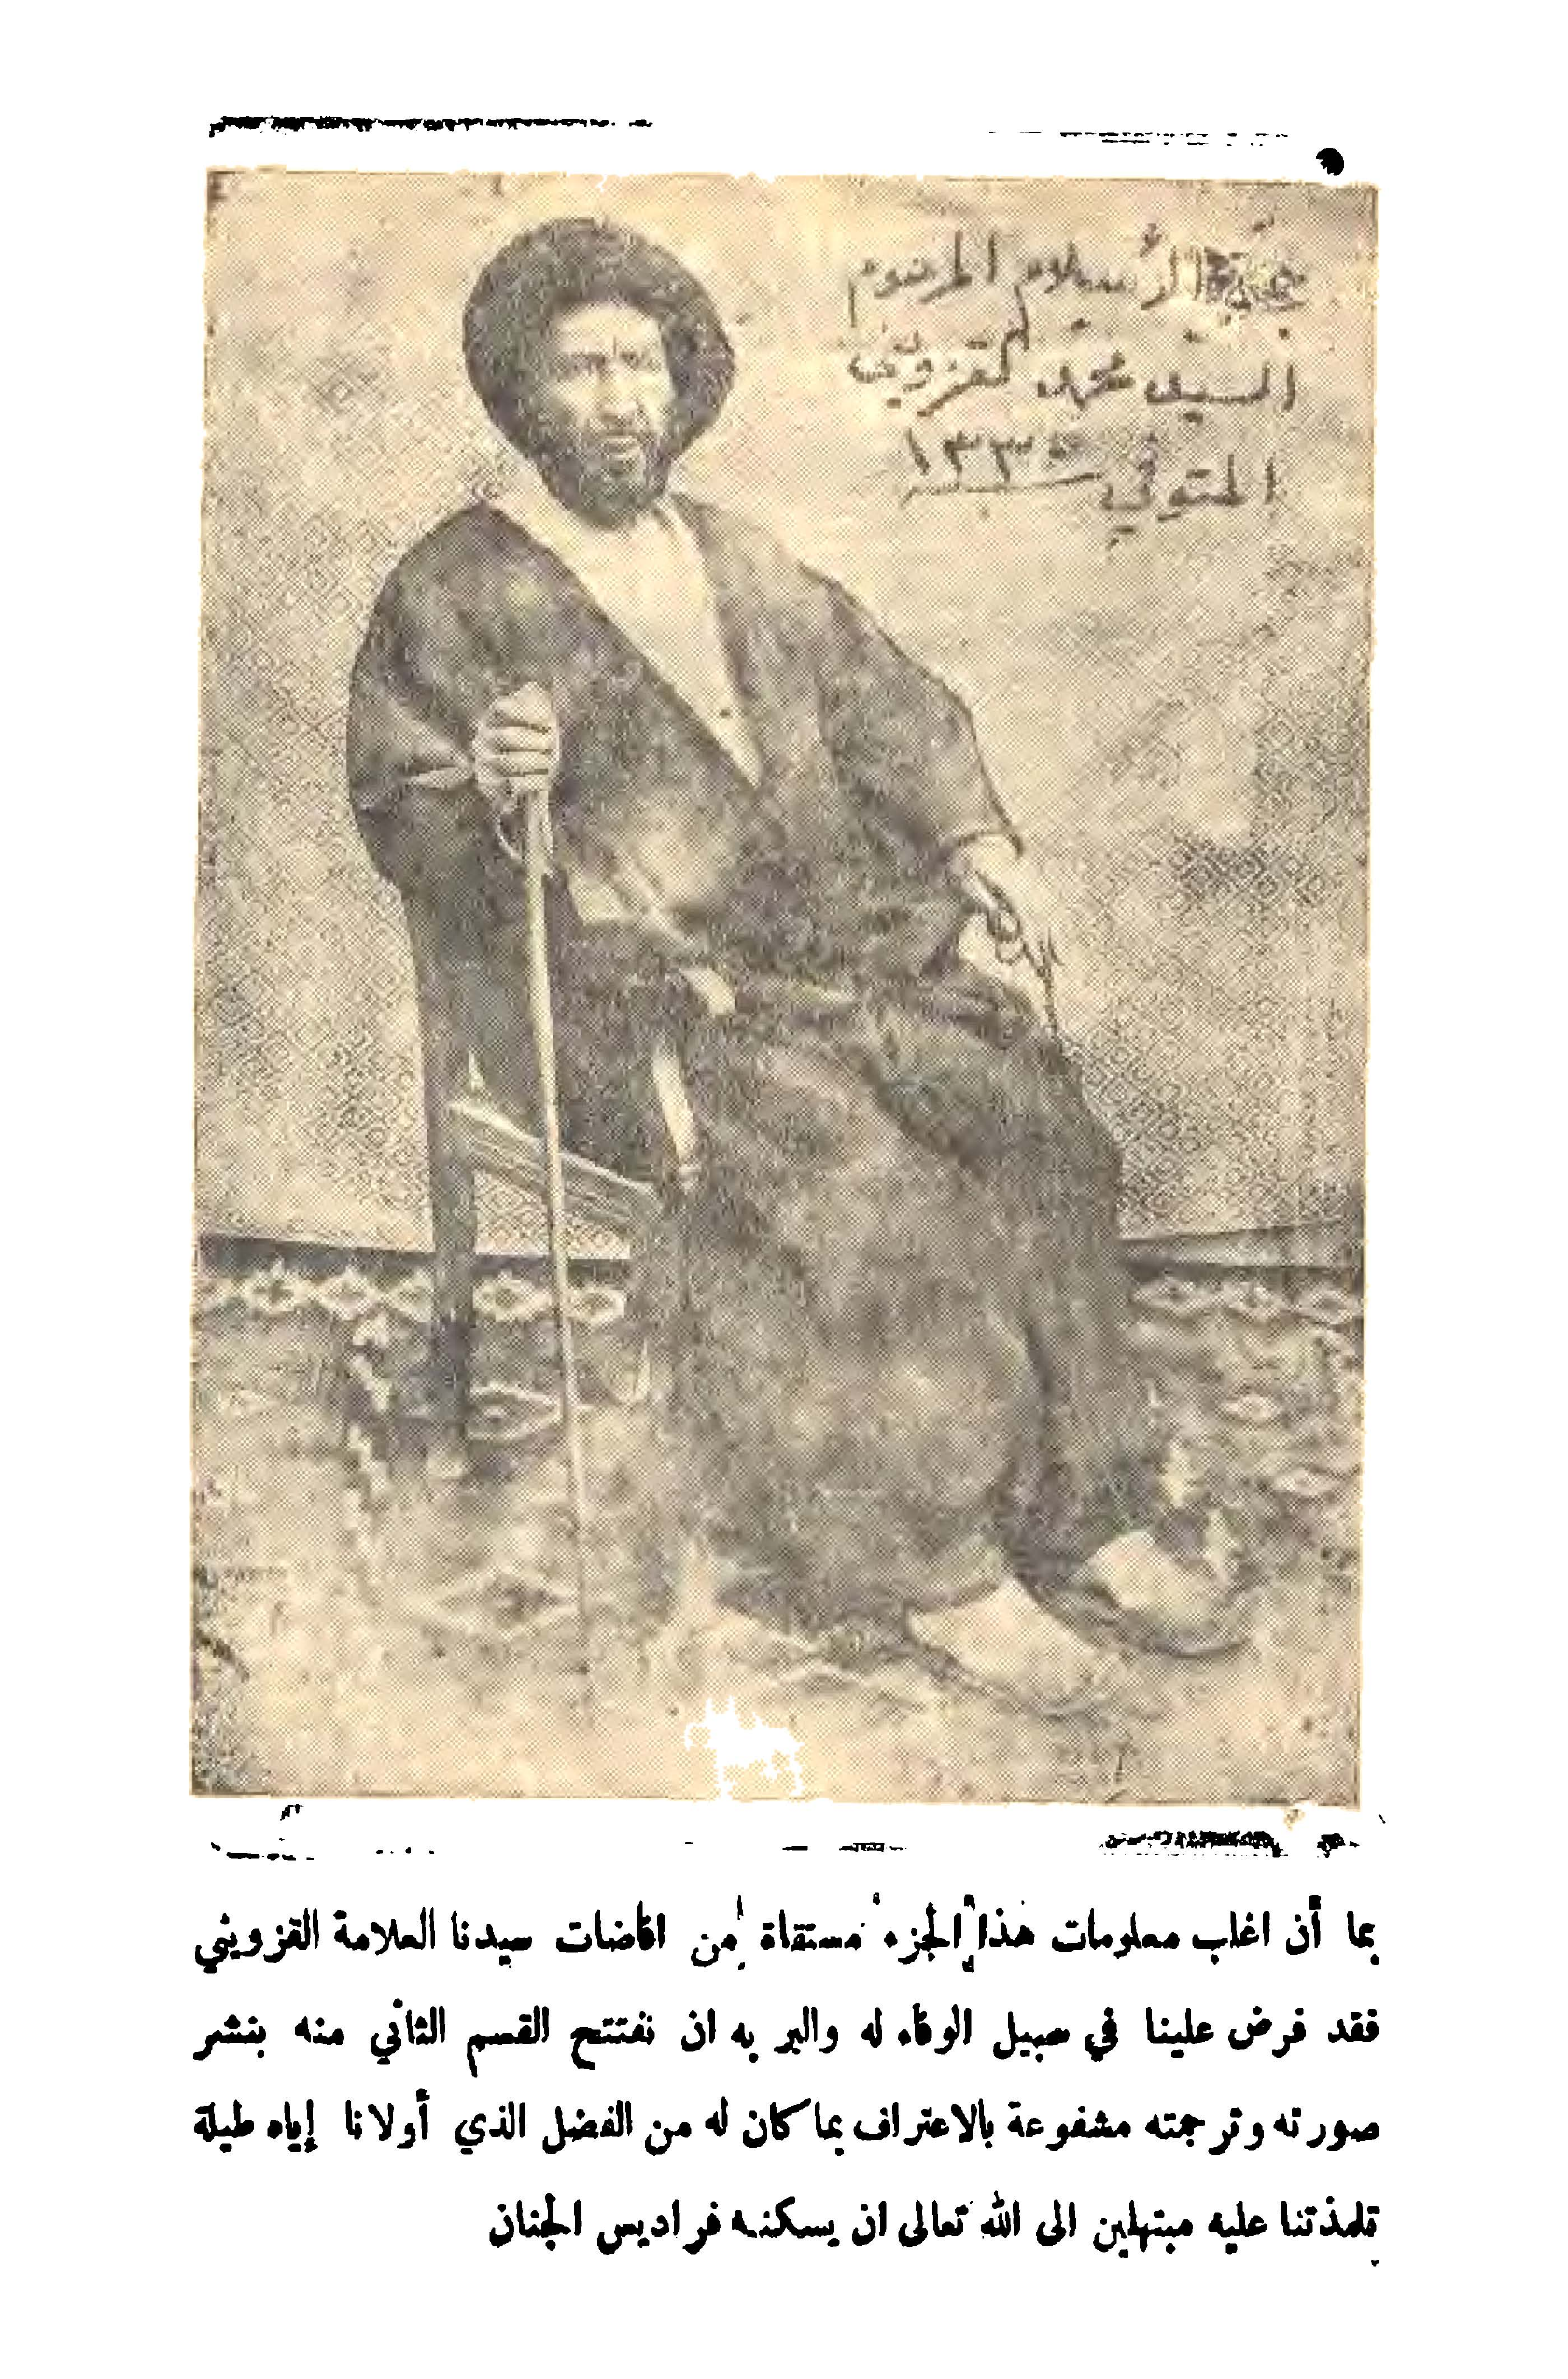 حجة الأسلام المرحوم
السيد محمد القزويني
المتوفي سنة
بما أن اغلب معلومات هذا الجزء مستقاة من افاضات سيدنا العلامة القزويني
فقد فرض علينا في سبيل الوفاء له والبر به ان نفتتح القسم الثاني منه بنشر
صورته وترجمته مشفوعة بالاعتراف بما كان له من الفضل الذي أولانا إياه طيلة
تلمذتنا عليه مبتهلين الى الله تعالى ان يسكنه فراديس الجنان